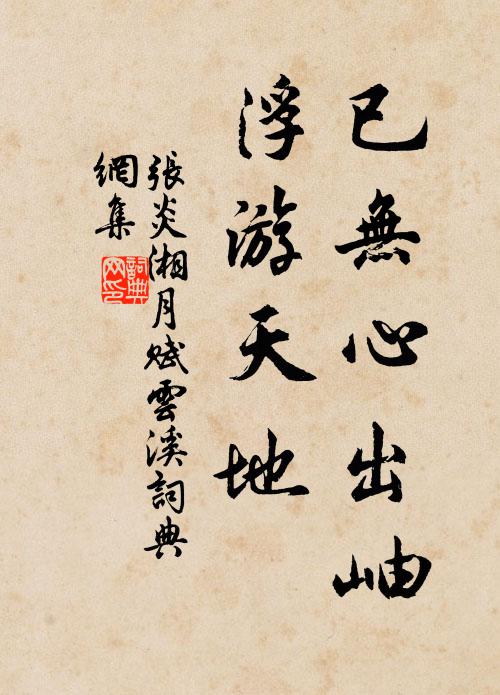 已無心出岫
浮游天地
張炎湘月賦雲溪詞典
網集
詞典
网印